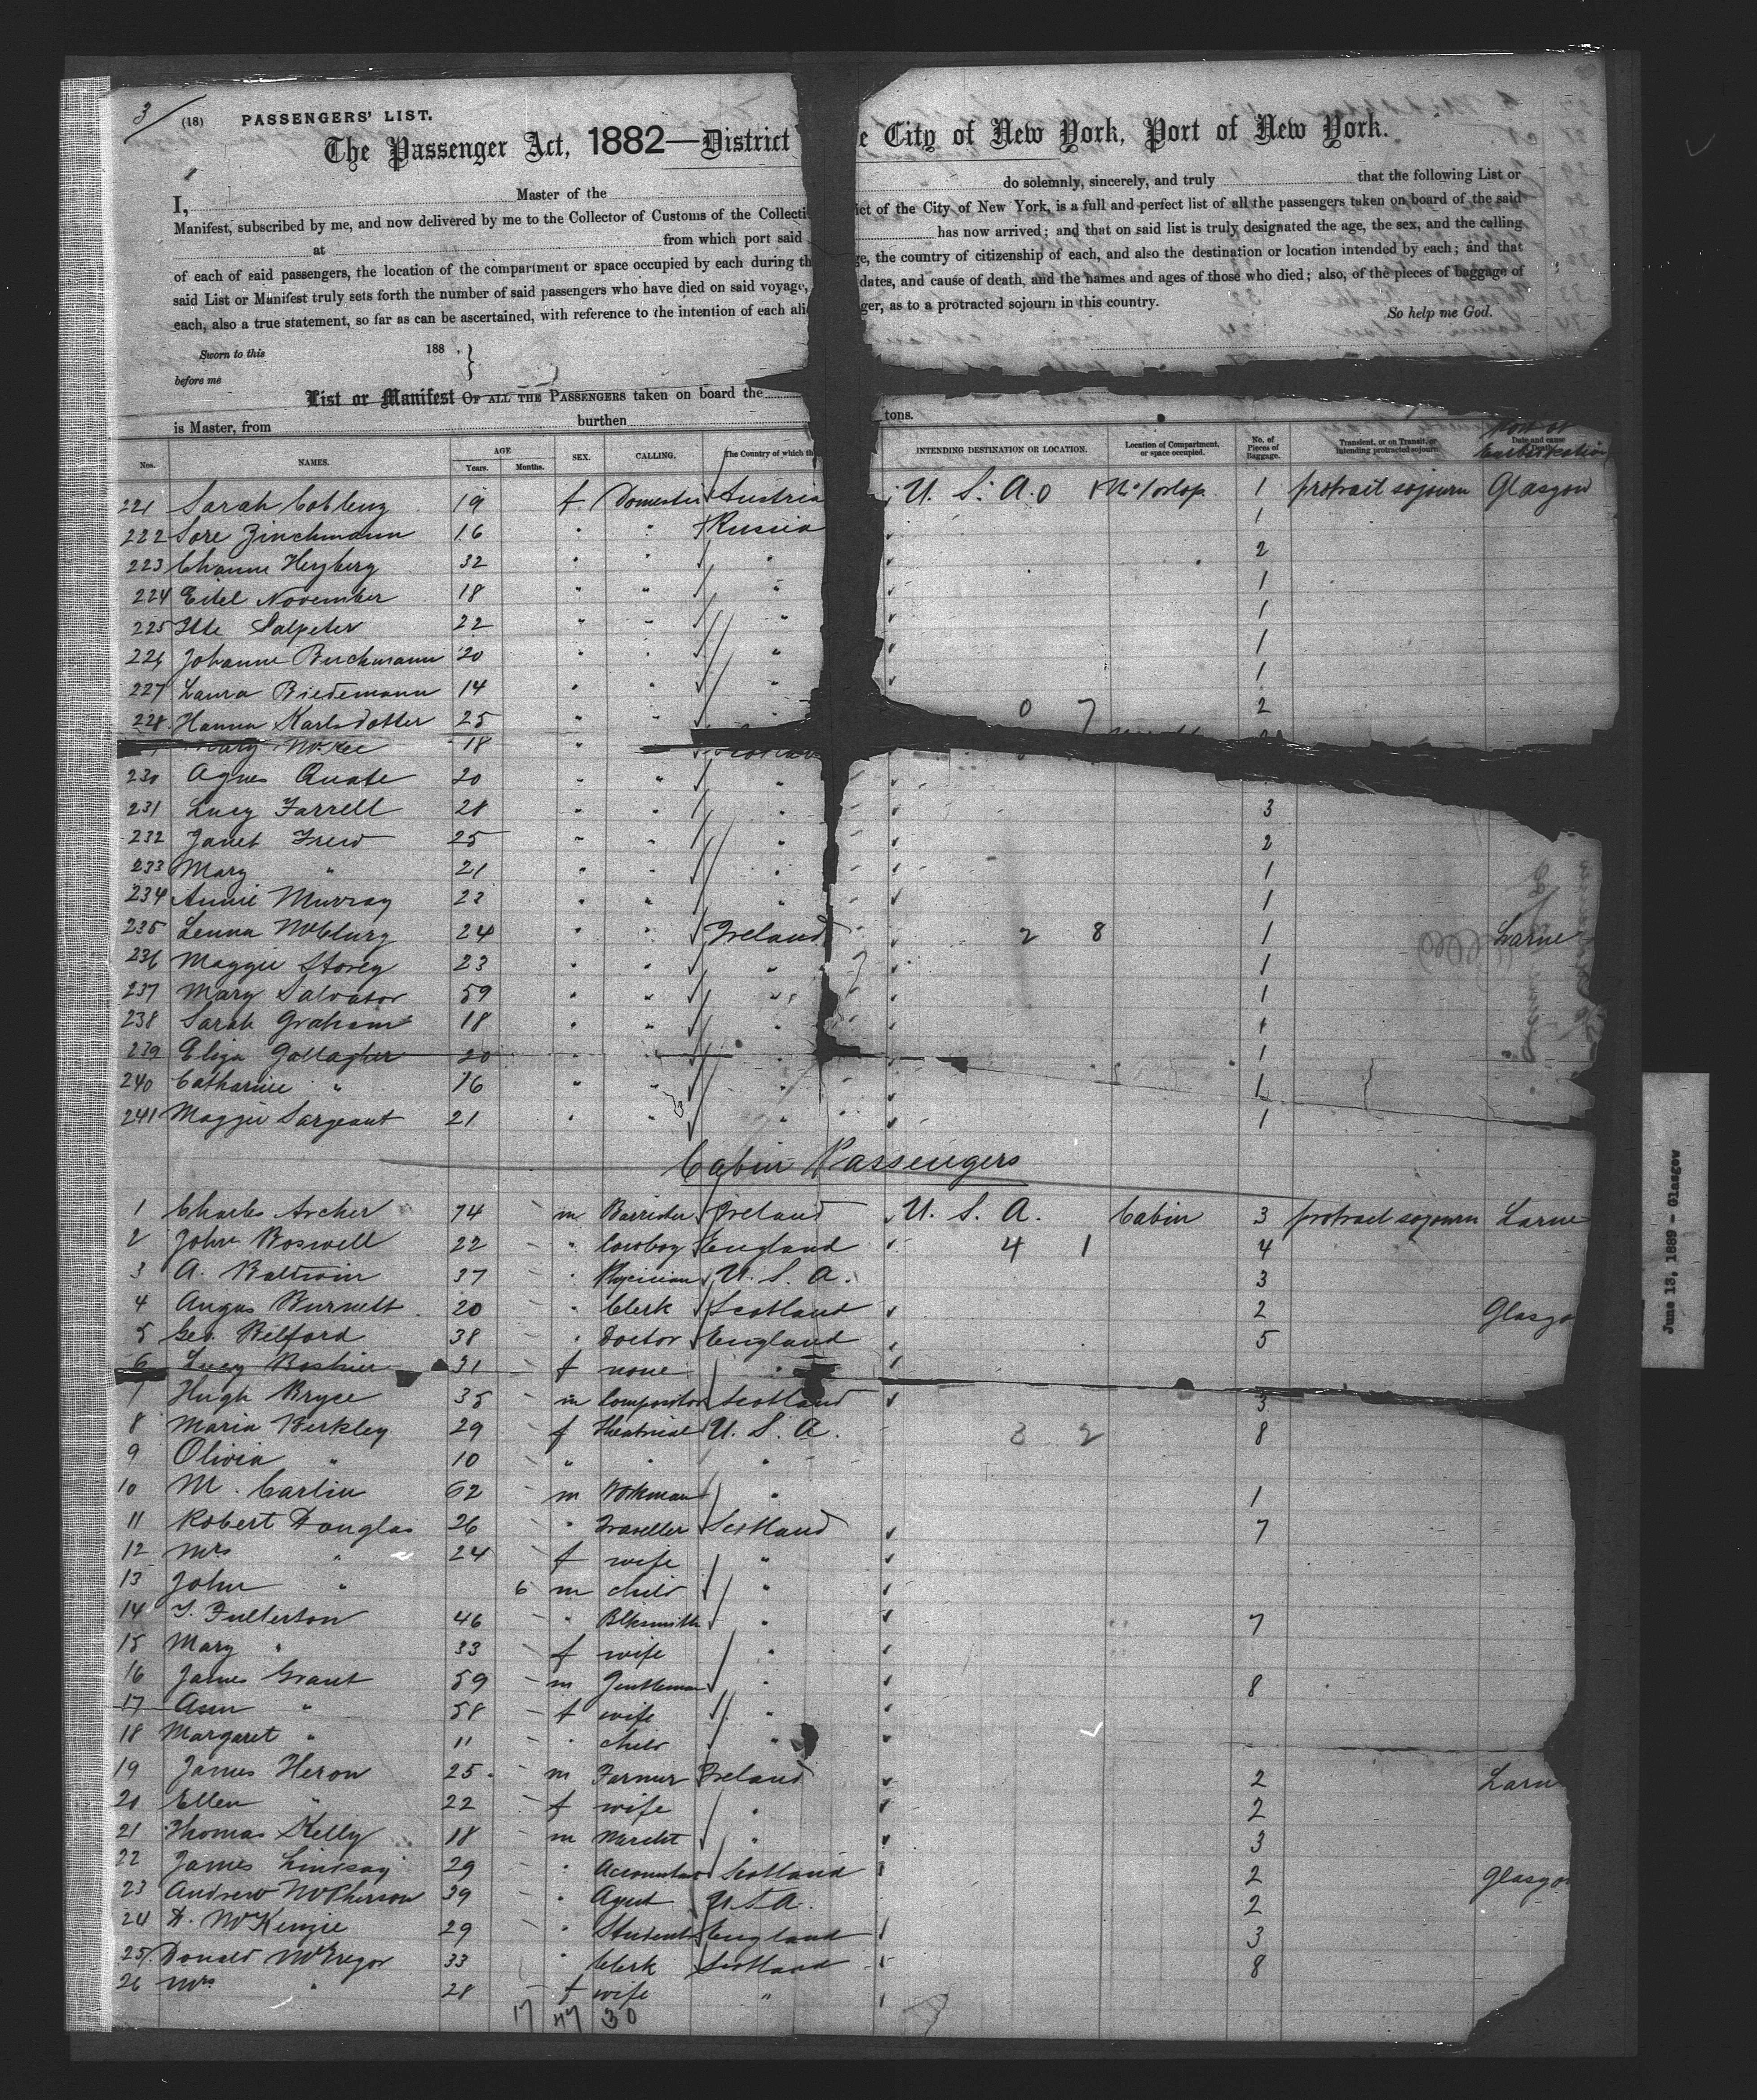 3/ (18) PASSENGERS' LIST.
The Passenger Act, 1882—District e City of New York, Port of New York.
I, Master of the do solemnly, sincerely, and truly that the following List or
Manifest, subscribed by me, and now delivered by me to the Collector of Customs of the Collecti ict of the City of New York, is a full and perfect list of all the passengers taken on board of the said
at from which port said has now arrived; and that on said list is truly designated the age, the sex, and the calling
of each of said passengers, the location of the compartment or space occupied by each during th ge, the country of citizenship of each, and also the destination or location intended by each; and that
said List or Manifest truly sets forth the number of said passengers who have died on said voyage, dates, and cause of death, and the names and ages of those who died; also, of the pieces of baggage of
each, also a true statement, so far as can be ascertained, with reference to the intention of each ali ger, as to a protracted sojourn in this country.
So help me God.
Sworn to this 188 . }
before me
List or Manifest OF ALL THE PASSENGERS taken on board the
is Master, from burthen tons.
Nos. NAMES. AGE Years. Months. SEX. CALLING. The Country of which th INTENDING DESTINATION OR LOCATION. Location of Compartment, or space occupied. No. of Pieces of Baggage. Transient, or on Transit, or Intending protracted sojourn. Date and cause of Death. Port of Embarkation
221 Sarah Coblenz 19 f Domestic Austria U. S. A. 1 protrait sojourn Glasgow
222 Sore Zinchmann 16 " " Russia 1
223 Channe Herzberg 32 " " " 2
224 Eitel November 18 " " " 1
225 Itte Salpeter 22 " " " 1
226 Johanne Buchmann 20 " " " 1
227 Laura Biedemann 14 " " " 1
228 Hanna Karlsdotter 25 " " " 0 7 2
Mary McKee 18 "
230 Agnes Quate 20 " " "
231 Lucy Farrell 28 " " " 3
232 Janet Frew 25 " " " 2
233 Mary " 21 " " " 1
234 Annie Murray 23 " " " 1
235 Lenna McClurg 24 " " Ireland 2 8 1 Larne
236 Maggie Storey 23 " " " 1
237 Mary Salvator 59 " " " 1
238 Sarah Graham 18 " " " 1
239 Eliza Gallagher 20 " " " 1
240 Catharine " 16 " " " 1
241 Maggie Sargeant 21 " " " 1
Cabin Passengers
1 Charles Archer 74 m Barrister Ireland U. S. A. Cabin 3 protract sojourn Larne
2 John Boswell 22 " Cowboy England 4 1 4
3 A. Baldwin 37 " Physician U. S. A. 3
4 Angus Burnett 20 " Clerk Scotland 2 Glasgo
5 Geo. Belford 38 " Doctor England 5
6 Lucy 31 f none "
7 Hugh Bryce 35 m Compositor Scotland 3
8 Maria Berkley 29 f Theatrical U. S. A. 3 2 8
9 Olivia " 10 " " "
10 M. Carlin 62 m Workman " 1
11 Robert Douglas 26 " Traveller Scotland 7
12 Mrs " 24 f wife "
13 John " 6 m child "
14 T. Fullerton 46 " Blksmith " 7
15 Mary " 33 f wife "
16 James Grant 59 m Gentleman " 8
17 Ann " 58 f wife "
18 Margaret " 11 " child "
19 James Heron 25 m Farmer Ireland 2 Larn
20 Ellen " 22 f wife " 2
21 Thomas Kelly 18 m Marcht " 3
22 James Lindsay 29 " Accountant Scotland 2 Glasgo
23 Andrew McPherson 39 " Agent U.S.A. 2
24 D. McKenzie 29 " Student England 3
25 Donald McGregor 33 " Clerk Scotland 8
26 Mrs " 28 f wife "
17 47 30
June 13, 1889 - Glasgow